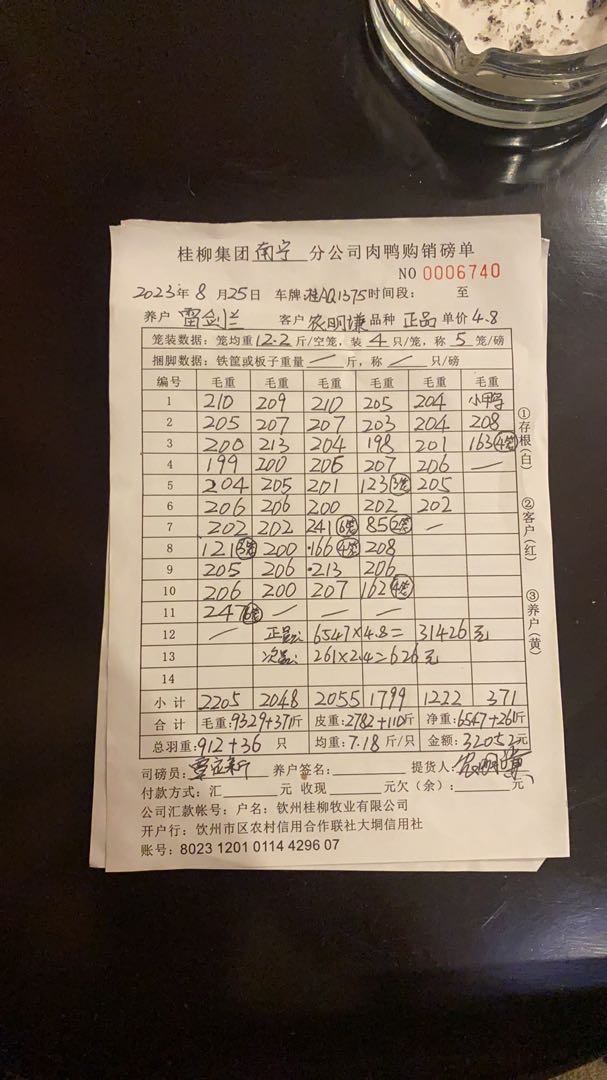 桂柳集团 南宁 分公司肉鸭购销磅单
NO 0006740
2023年 8 月 25日 车牌:桂AQ1375 时间段: 至
养户 雷剑兰 客户 农明谦 品种 正品 单价 4.8
笼装数据:笼均重12.2斤/空笼,装 4 只/笼,称 5 笼/磅
捆脚数据:铁筐或板子重量 / 斤,称 / 只/磅
编号 毛重 毛重 毛重 毛重 毛重
1 210 209 210 205 204 小鸭
2 205 207 207 203 204 208
3 200 213 204 198 201 163(4笼)
4 199 200 205 207 206 —
5 204 205 201 123(3笼) 205
6 206 206 200 202 202
7 202 202 241(6笼) 85(2笼) —
8 121(3笼) 200 166(4笼) 208
9 205 206 213 206
10 206 200 207 162(4笼)
11 247(6笼) — — —
12 — 正品: 6547×4.8= 31426元
13 次品: 261×2.4=626元
14
小计 2205 2048 2055 1799 1222 371
合计 毛重:9329+371斤 皮重:2782+110斤 净重:6547+261斤
总羽重:912+36 只 均重:7.18 斤/只 金额:32052元
司磅员: 养户签名: 提货人:农明谦
付款方式:汇 元 收现 元欠(余): 元
公司汇款帐号:户名:钦州桂柳牧业有限公司
开户行:钦州市区农村信用合作联社大垌信用社
账号:8023 1201 0114 4296 07
①存根(白)
②客户(红)
③养户(黄)